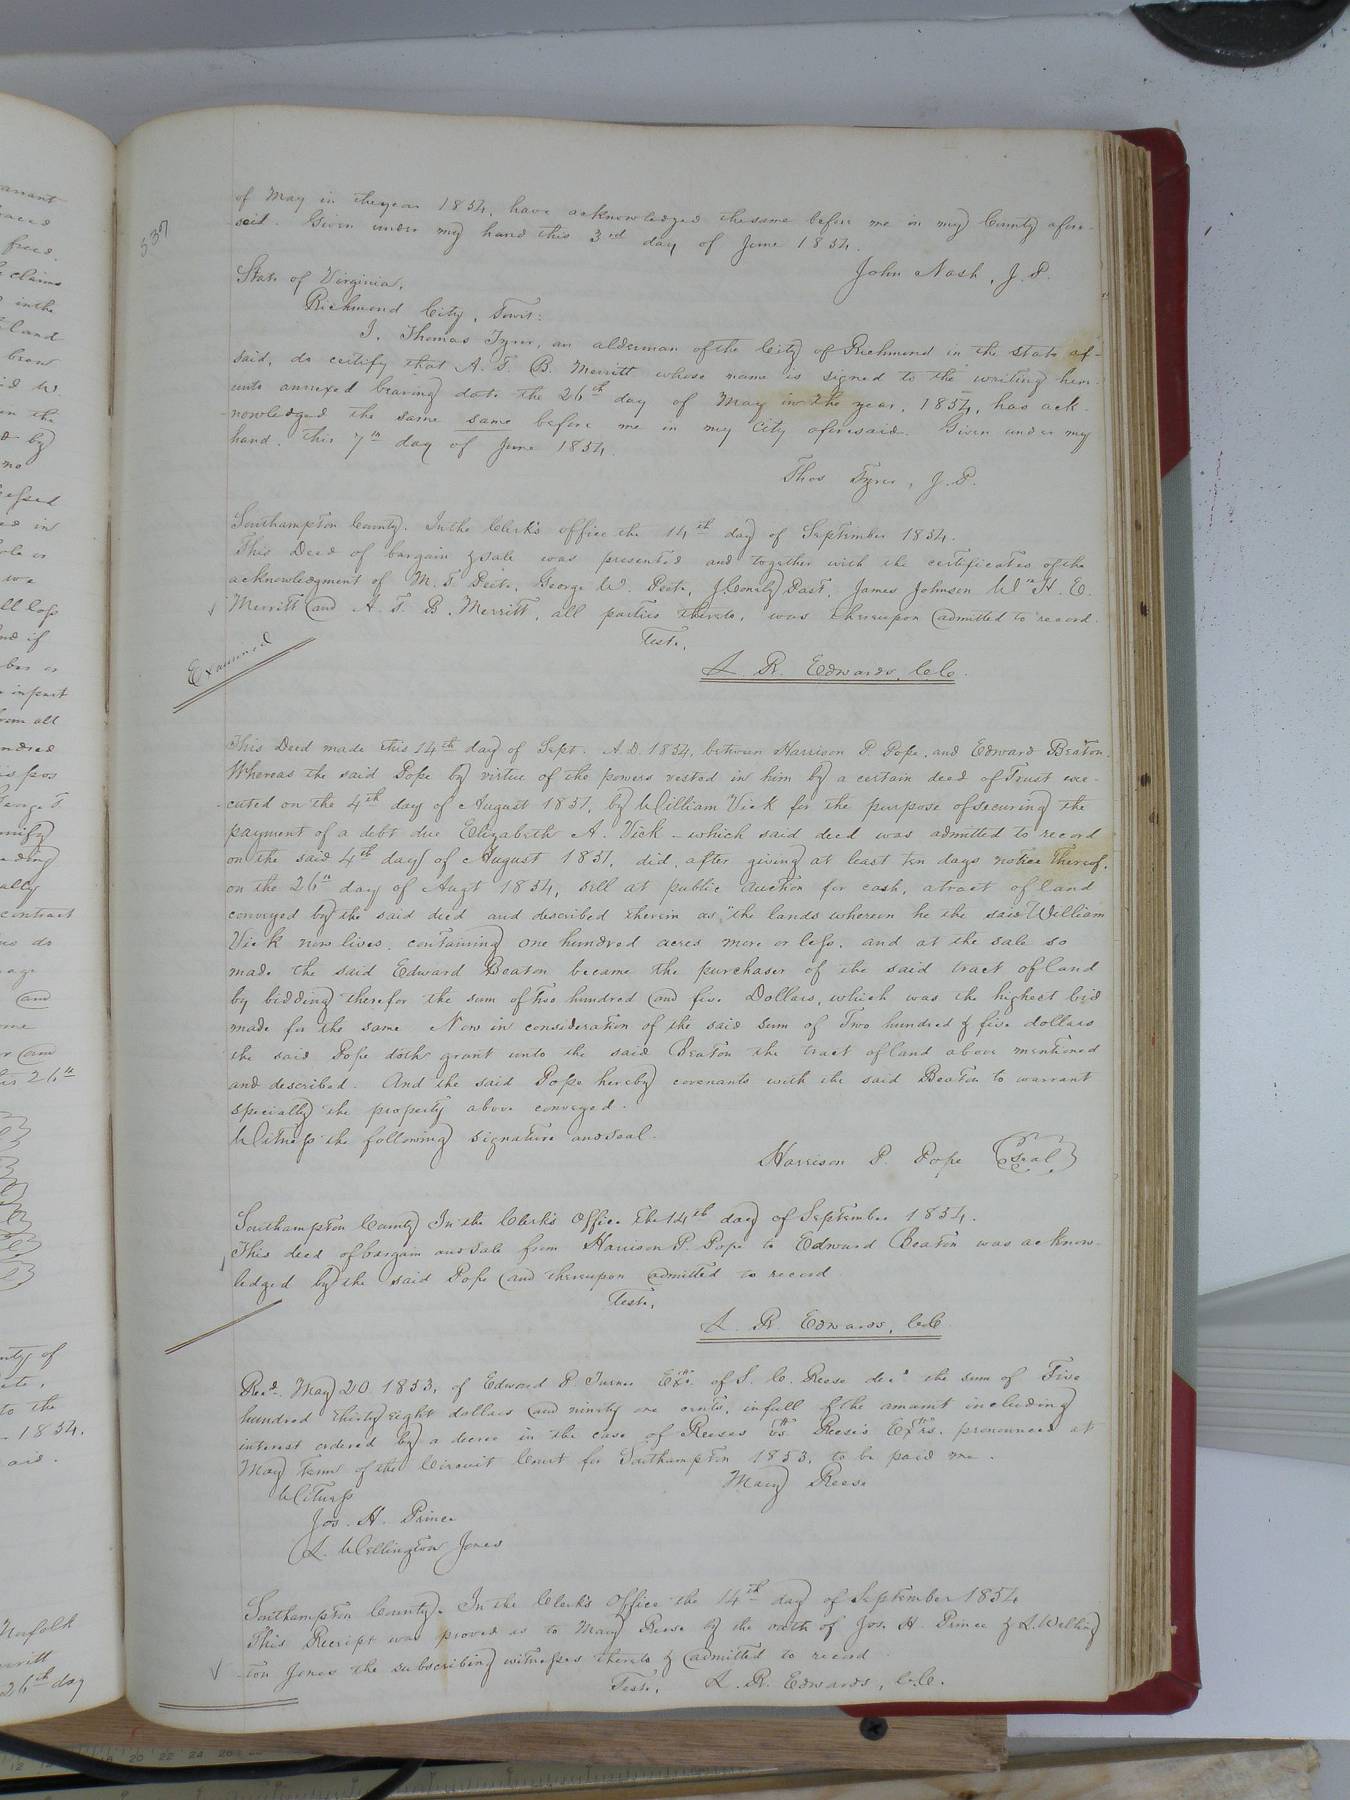 337
of May in the year 1854, have acknowledged the same before me in my County afore-
said. Given under my hand this 3rd day of June 1854.
John Nash, J. P.
State of Virginia,
Richmond City, Towit:
I, Thomas Tyrer, an alderman of the City of Richmond in the State af-
said, do certify that A. T. B. Merritt whose name is signed to the writing here-
unto annexed bearing date the 26th day of May in the year, 1854, has ack-
nowledged the same same before me in my City aforesaid. Given under my
hand. this 7th day of June 1854.
Thos Tyrer, J. P.
Southampton County. In the Clerk's office the 14th day of September 1854.
This Deed of bargain & sale was presented and together with the certificates of the
acknowledgment of M. T. Peete, George W. Peete, James Johnson Wm H. E.
Merritt and A. T. B. Merritt, all parties thereto, was thereupon admitted to record.
Teste,
Examined
L. R. Edwards, C.C.
This Deed made this 14th day of Sept. A.D. 1854, between Harrison P. Pope, and Edward Beaton.
Whereas the said Pope by virtue of the powers vested in him by a certain deed of Trust exe-
cuted on the 4th day of August 1851, by William Vick for the purpose of securing the
payment of a debt due Elizabeth A. Vick - which said deed was admitted to record
on the said 4th day of August 1851, did, after giving at least ten days notice thereof,
on the 26th day of Augt 1854, sell at public auction for cash, a tract of land
conveyed by the said deed and described therein as "the lands wherein he the said William
Vick now lives, containing one hundred acres more or less, and at the sale so
made the said Edward Beaton became the purchaser of the said tract of land
by bidding therefor the sum of two hundred and five Dollars, which was the highest bid
made for the same Now in consideration of the said sum of Two hundred & five dollars
the said Pope doth grant unto the said Beaton the tract of land above mentioned
and described. And the said Pope hereby covenants with the said Beaton to warrant
specially the property above conveyed.
Witness the following signature and seal.
Harrison P. Pope (Seal)
Southampton County In the Clerk's Office the 14th day of September 1854.
This deed of bargain and sale from Harrison P. Pope to Edward Beaton was acknow-
ledged by the said Pope and thereupon admitted to record
Teste,
L. R. Edwards, C.C.
Recd. May 20 1853, of Edward P. Turner Exr. of S. C. Reese decd the sum of Five
hundred thirty eight dollars and ninety one cents, in full of the amount including
interest ordered by a decree in the case of Reeses vs. Reese's Exrs. pronounced at
May Term of the Circuit Court for Southampton 1853, to be paid me.
Witness
Mary Reese
Jos. H. Prince
L. Wellington Jones
Southampton County. In the Clerk's Office the 14th day of September 1854
This Receipt was proved as to Mary Reese by the oath of Jos. H. Prince & L. Welling
ton Jones the subscribing witnesses thereto & admitted to record
Teste, L. R. Edwards, C.C.